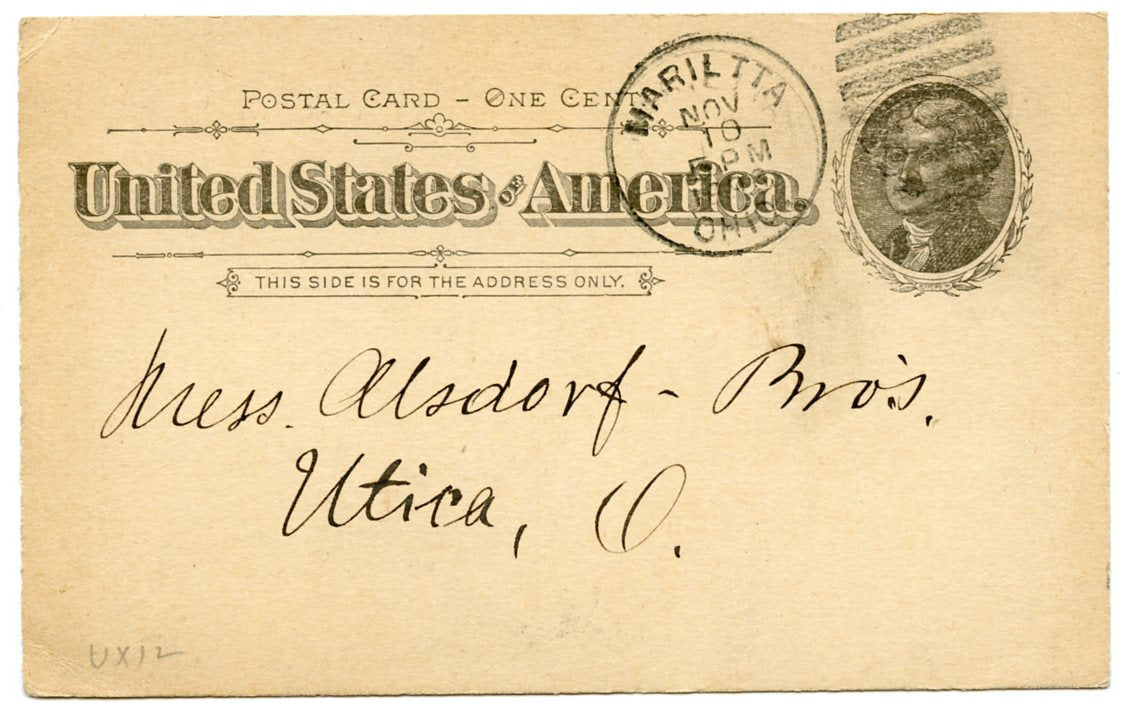 POSTAL CARD – ONE CENT.
United States of America.
THIS SIDE IS FOR THE ADDRESS ONLY.
MARILTTA
NOV
10
5 PM
OHIO
Mess. Alsdorf - Bro's.
Utica, O.
UX12